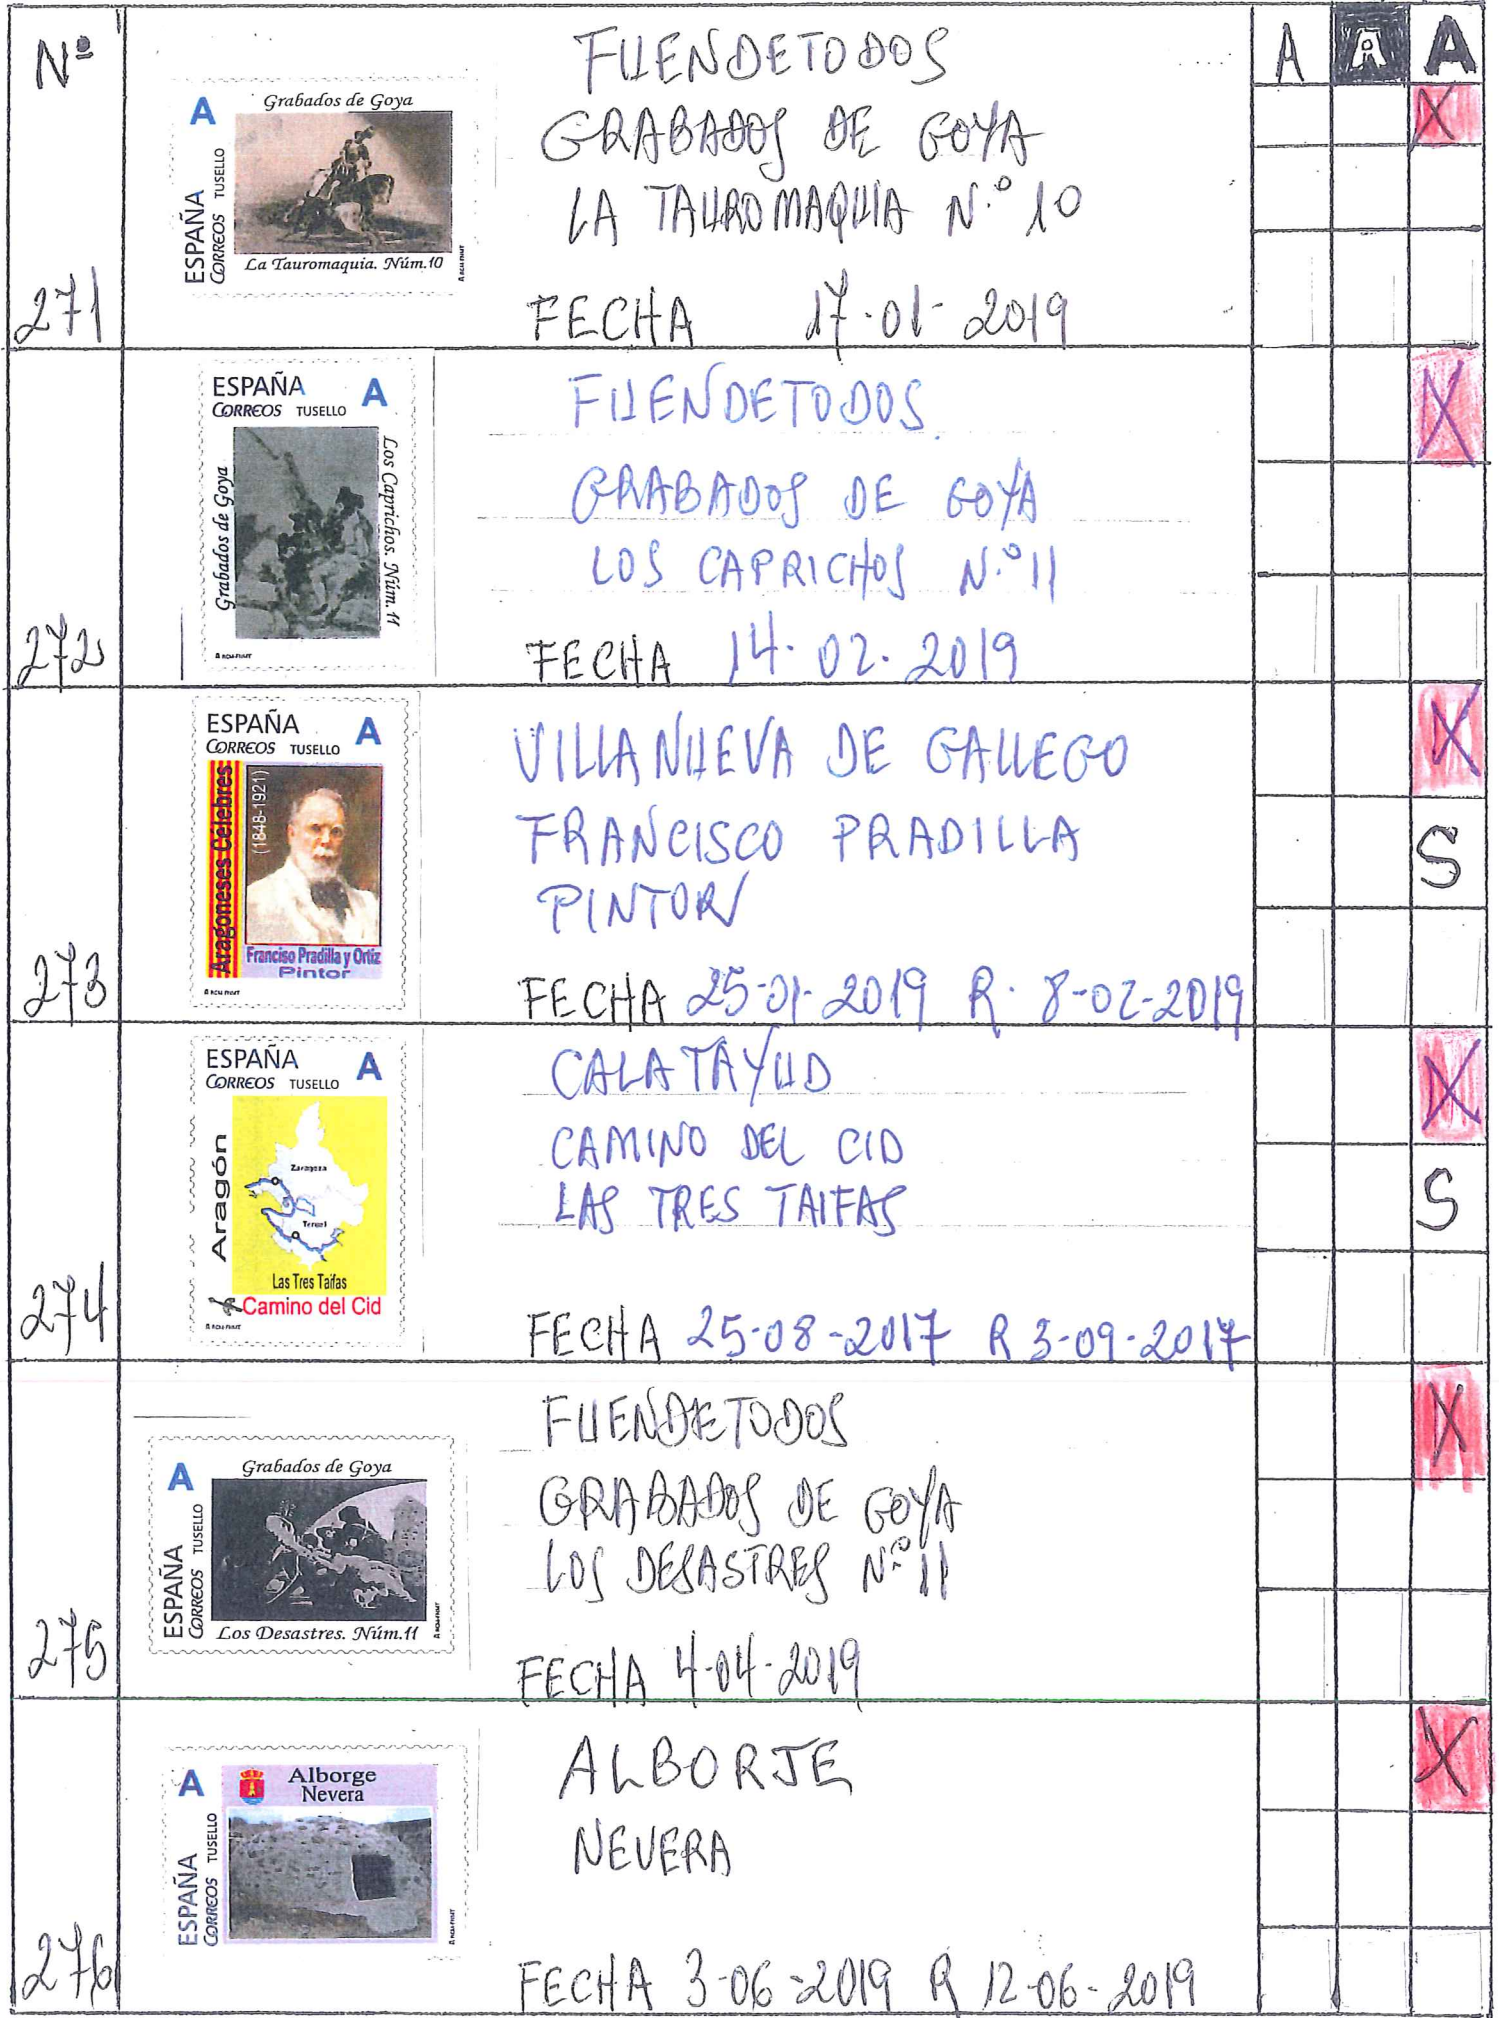 Nº
A A A
A
Grabados de Goya
ESPAÑA
CORREOS TUSELLO
La Tauromaquia. Núm.10
FUENDETODOS
GRABADOS DE GOYA
LA TAUROMAQUIA N.º 10
FECHA 17-01-2019
X
271
ESPAÑA
CORREOS TUSELLO
A
Grabados de Goya
Los Caprichos. Núm. 11
FUENDETODOS
GRABADOS DE GOYA
LOS CAPRICHOS N.º 11
FECHA 14.02.2019
X
272
ESPAÑA
CORREOS TUSELLO
A
Aragoneses Célebres
(1848-1921)
Franciso Pradilla y Ortiz
Pintor
VILLANUEVA DE GALLEGO
FRANCISCO PRADILLA
PINTOR
FECHA 25-01-2019 R. 8-02-2019
X
S
273
ESPAÑA
CORREOS TUSELLO
A
Aragón
Zaragoza
Teruel
Las Tres Taifas
Camino del Cid
CALATAYUD
CAMINO DEL CID
LAS TRES TAIFAS
FECHA 25-08-2017 R 3-09-2017
X
S
274
A
Grabados de Goya
ESPAÑA
CORREOS TUSELLO
Los Desastres. Núm.11
FUENDETODOS
GRABADOS DE GOYA
LOS DESASTRES Nº 11
FECHA 4-04-2019
X
275
A
Alborge
Nevera
ESPAÑA
CORREOS TUSELLO
ALBORJE
NEVERA
FECHA 3-06-2019 R 12-06-2019
X
276